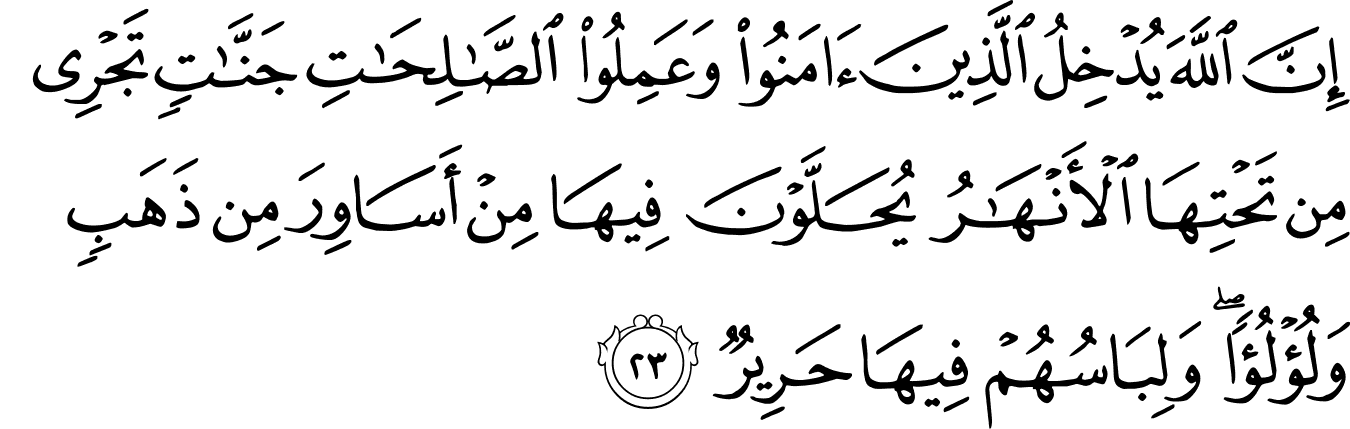 إِنَّ ٱللَّهَ يُدۡخِلُ ٱلَّذِينَ ءَامَنُواْ وَعَمِلُواْ ٱلصَّٰلِحَٰتِ جَنَّٰتٖ تَجۡرِي
مِن تَحۡتِهَا ٱلۡأَنۡهَٰرُ يُحَلَّوۡنَ فِيهَا مِنۡ أَسَاوِرَ مِن ذَهَبٖ
وَلُؤۡلُؤٗاۖ وَلِبَاسُهُمۡ فِيهَا حَرِيرٞ ٢٣